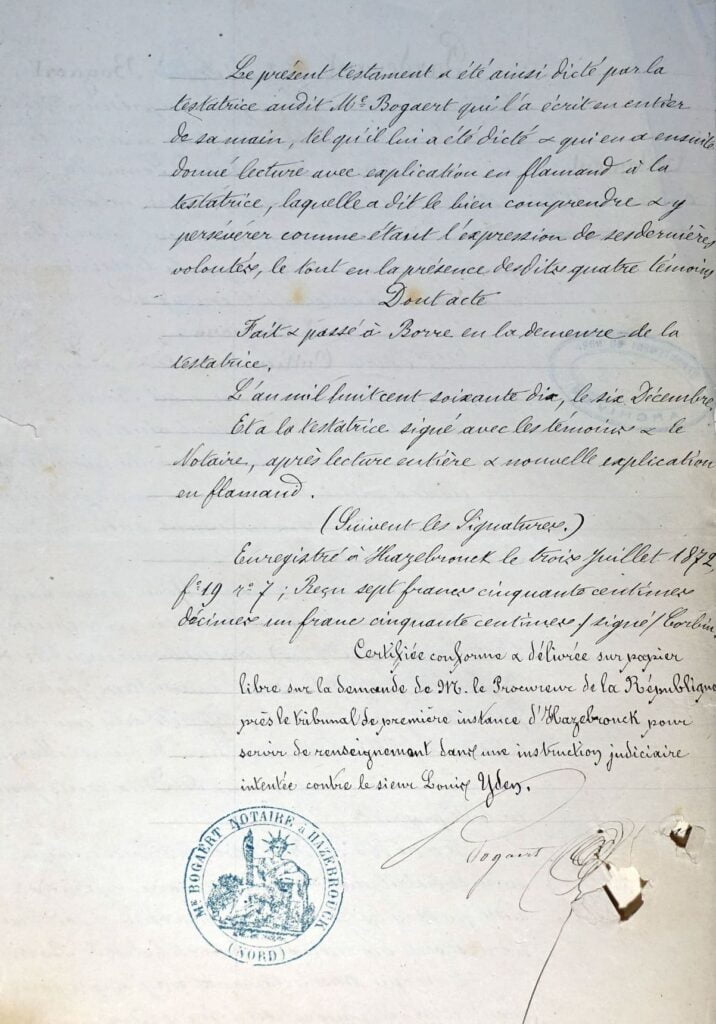 Le présent testament a été ainsi dicté par la
testatrice audit Me Bogaert qui l'a écrit en entier
de sa main, tel qu'il lui a été dicté & qui en a ensuite
donné lecture avec explication en flamand à la
testatrice, laquelle a dit le bien comprendre & y
persévérer comme étant l'expression de ses dernières
volontés, le tout en la présence desdits quatre témoins
Dont acte
Fait & passé à Borre en la demeure de la
testatrice.
L'an mil huit cent soixante dix, le six Décembre.
Et a la testatrice signé avec les témoins & le
Notaire, après lecture entière & nouvelle explication
en flamand.
(Suivent les Signatures.)
Enregistré à Hazebrouck le trois Juillet 1872,
fo 19 ro 7 ; Reçu sept francs cinquante centimes
décimes un franc cinquante centimes / signé / Corbin.
Certifiée conforme & délivrée sur papier
libre sur la demande de M. le Procureur de la République
près le tribunal de première instance d'Hazebrouck pour
servir de renseignement dans une instruction judiciaire
intentée contre le sieur Louis Yden.
Bogaert
Me BOGAERT NOTAIRE à HAZEBROUCK
(NORD)